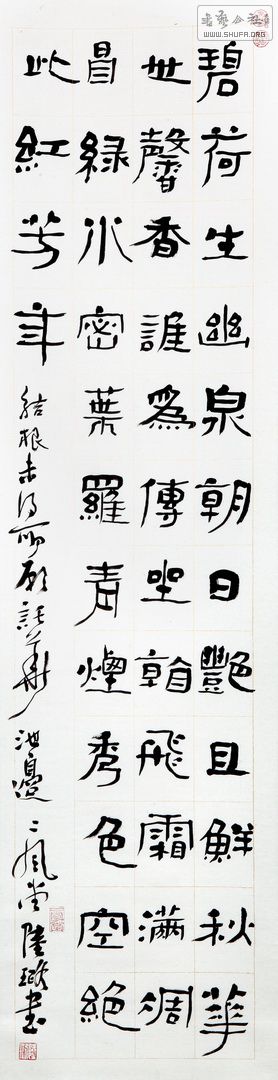 书艺公社
WWW.SHUFA.ORG
碧荷生幽泉朝日艷且鮮秋華
世馨香誰為傳坐看飛霜滿凋
冒綠水密葉羅青煙秀色空絕
此紅芳年
結根未得所願託華池邊 二風堂 陸璐書